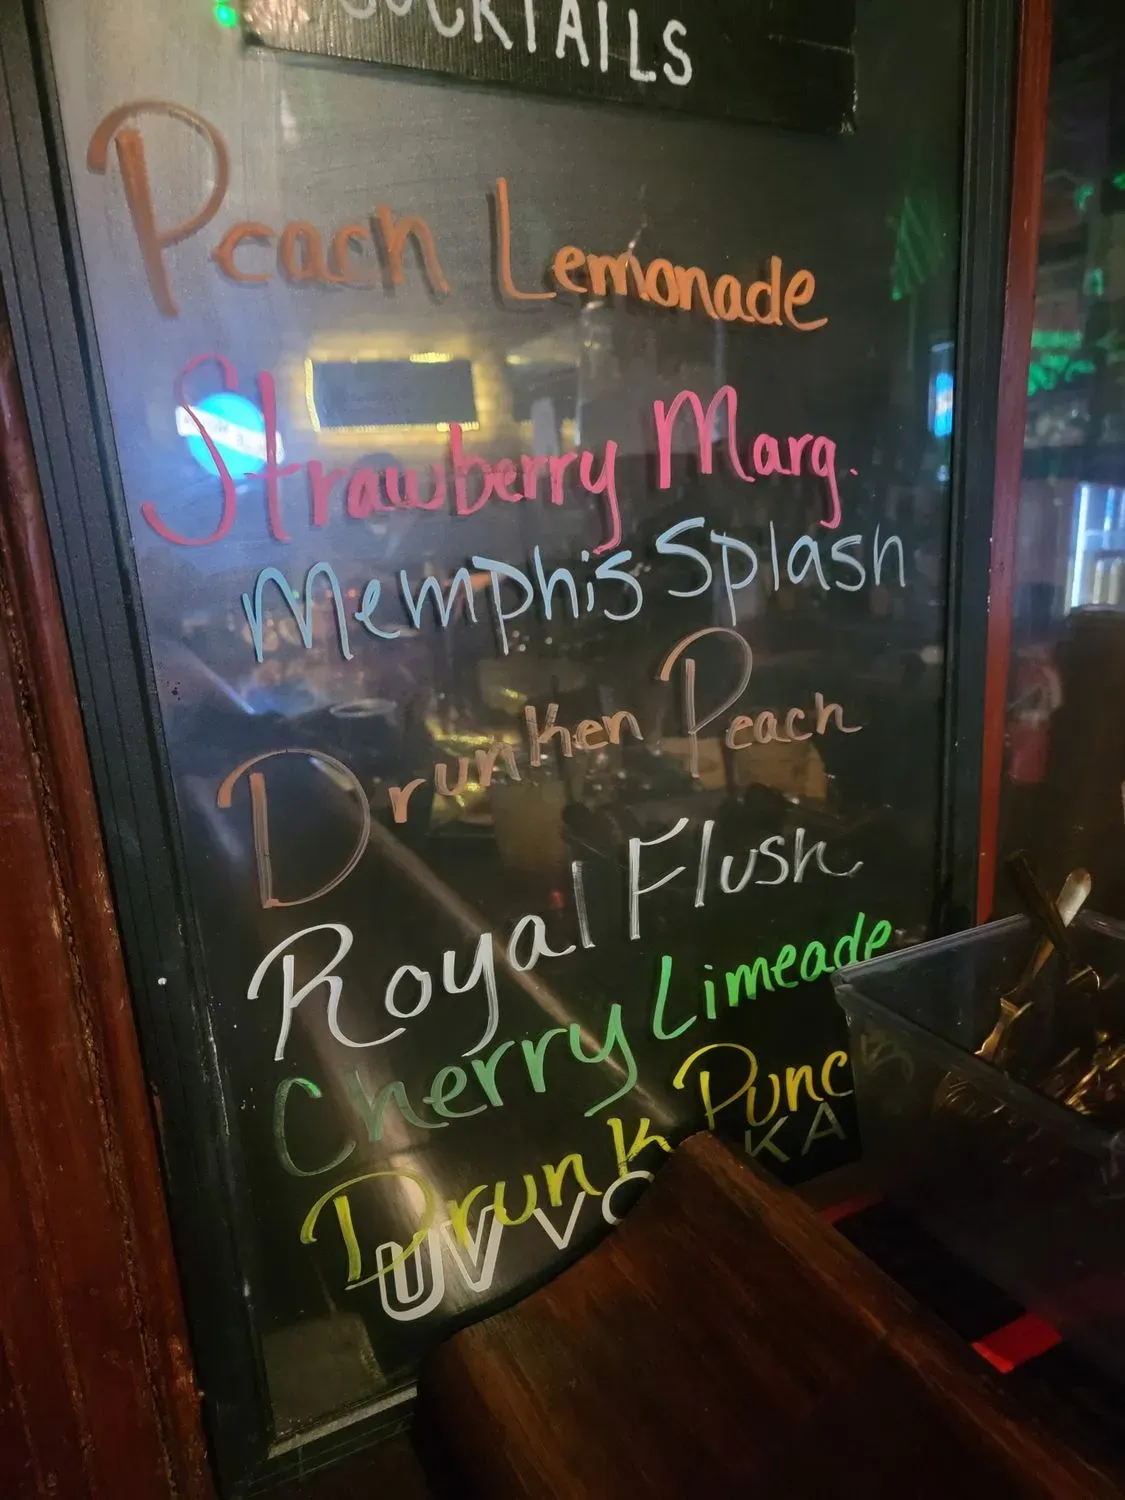 COCKTAILS
Peach Lemonade
Strawberry Marg.
Memphis Splash
Drunken Peach
Royal Flush
Cherry Limeade
Drunk Punch
UV VO KA